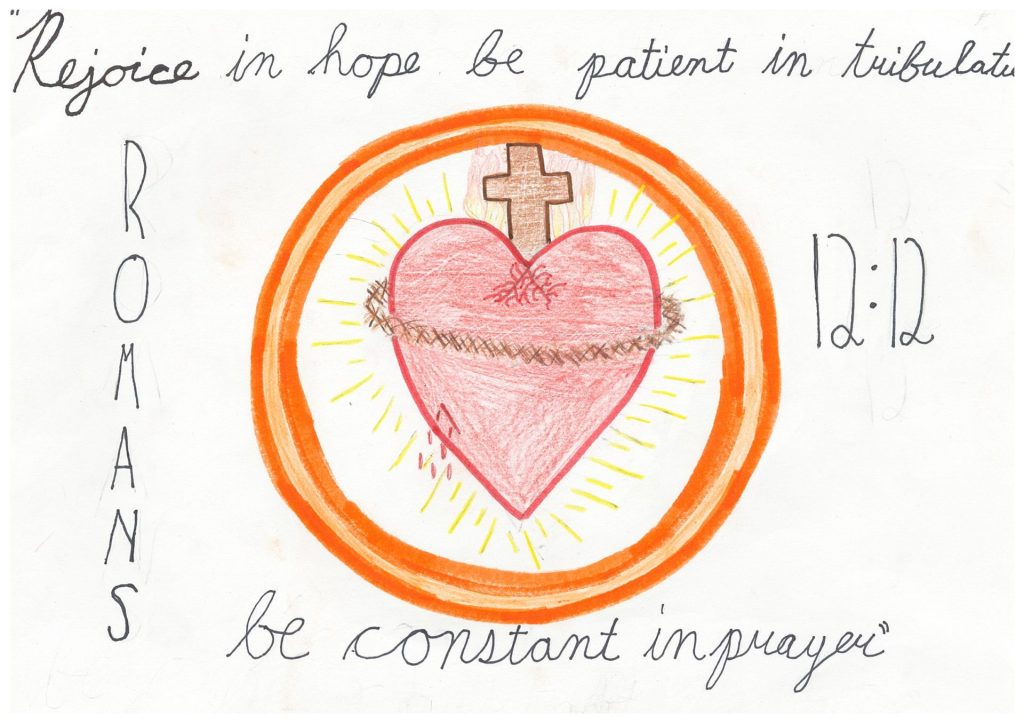 "Rejoice in hope be patient in tribulati
ROMANS
12:12
be constant in prayer"